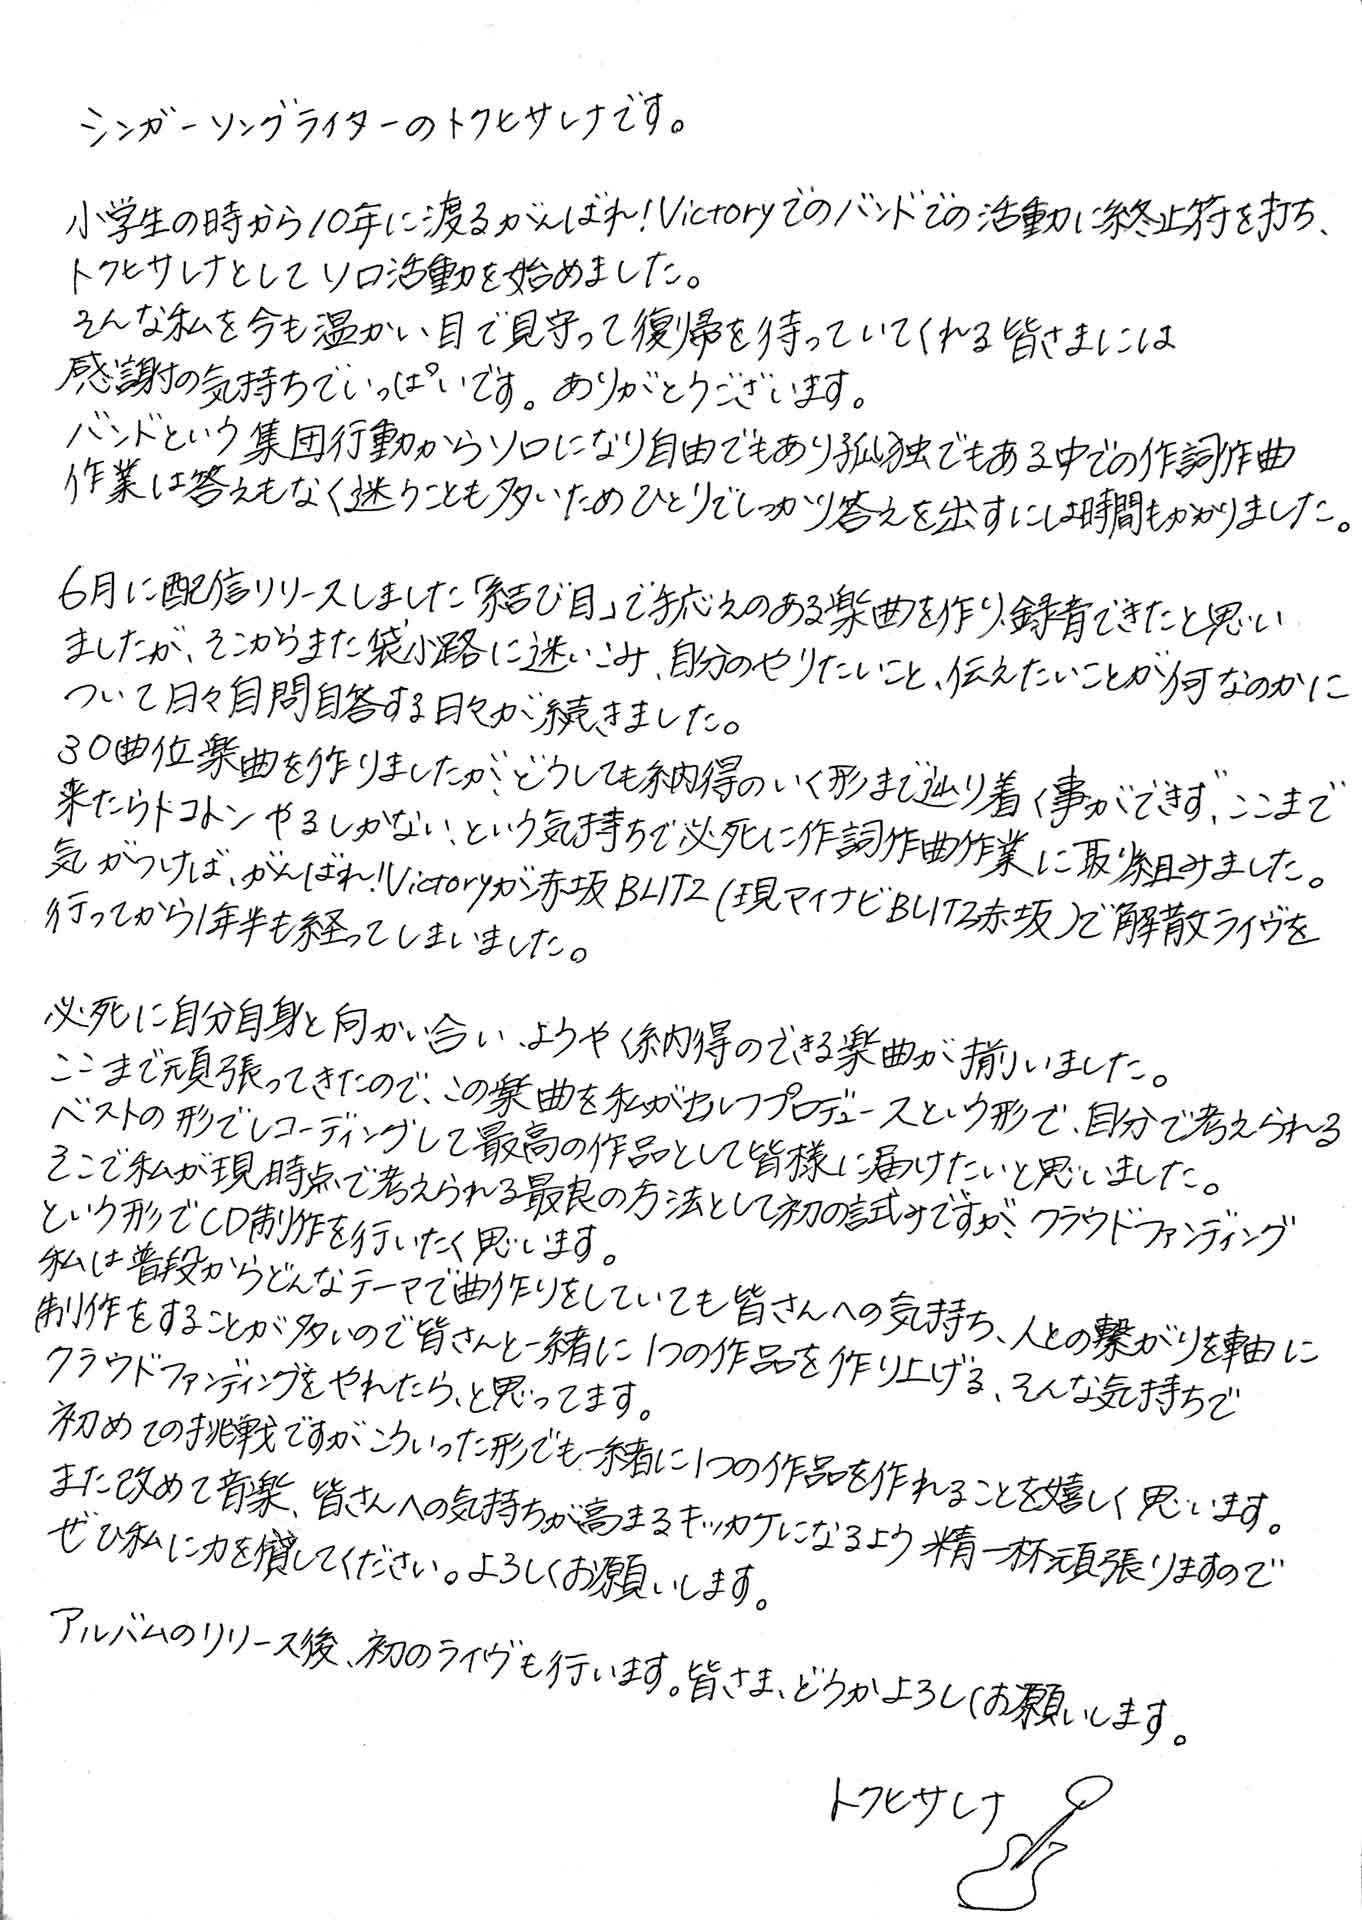 シンガーソングライターのトクヒサレナです。
小学生の時から10年に渡るがんばれ!Victoryでのバンドでの活動に終止符を打ち、
トクヒサレナとしてソロ活動を始めました。
そんな私を今も温かい目で見守って復帰を待っていてくれる皆さまには
感謝の気持ちでいっぱいです。ありがとうございます。
バンドという集団行動からソロになり自由でもあり孤独でもある中での作詞作曲
作業は答えもなく迷うことも多いためひとりでしっかり答えを出すには時間もかかりました。
6月に配信リリースしました「結び目」で手応えのある楽曲を作り、録音できたと思い
ましたが、そこからまた袋小路に迷いこみ、自分のやりたいこと、伝えたいことが何なのかに
ついて日々自問自答する日々が続きました。
30曲位楽曲を作りましたが、どうしても納得のいく形まで辿り着く事ができず、ここまで
来たらトコトンやるしかない、という気持ちで必死に作詞作曲作業に取り組みました。
気がつけば、がんばれ!Victoryが赤坂BLITZ(現マイナビBLITZ赤坂)で解散ライヴを
行ってから1年半も経ってしまいました。
必死に自分自身と向かい合い、ようやく納得のできる楽曲が揃いました。
ここまで頑張ってきたので、この楽曲を私がセルフプロデュースという形で、自分で考えられる
ベストの形でレコーディングして最高の作品として皆様に届けたいと思いました。
そこで私が現時点で考えられる最良の方法として初の試みですが、クラウドファンディング
という形でCD制作を行いたく思います。
私は普段からどんなテーマで曲作りをしていても皆さんへの気持ち、人との繋がりを軸に
制作をすることが多いので皆さんと一緒に1つの作品を作り上げる、そんな気持ちで
クラウドファンディングをやれたら、と思ってます。
初めての挑戦ですがこういった形でも一緒に1つの作品を作れることを嬉しく思います。
また改めて音楽、皆さんへの気持ちが高まるキッカケになるよう精一杯頑張りますので
ぜひ私に力を貸してください。よろしくお願いします。
アルバムのリリース後、初のライヴも行います。皆さま、どうかよろしくお願いします。
トクヒサレナ